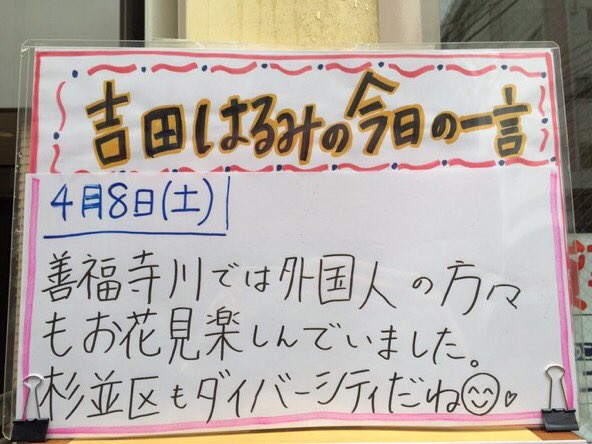 吉田はるみの今日の一言
4月8日(土)
善福寺川では外国人の方々
もお花見楽しんでいました。
杉並区もダイバーシティだね😊♥